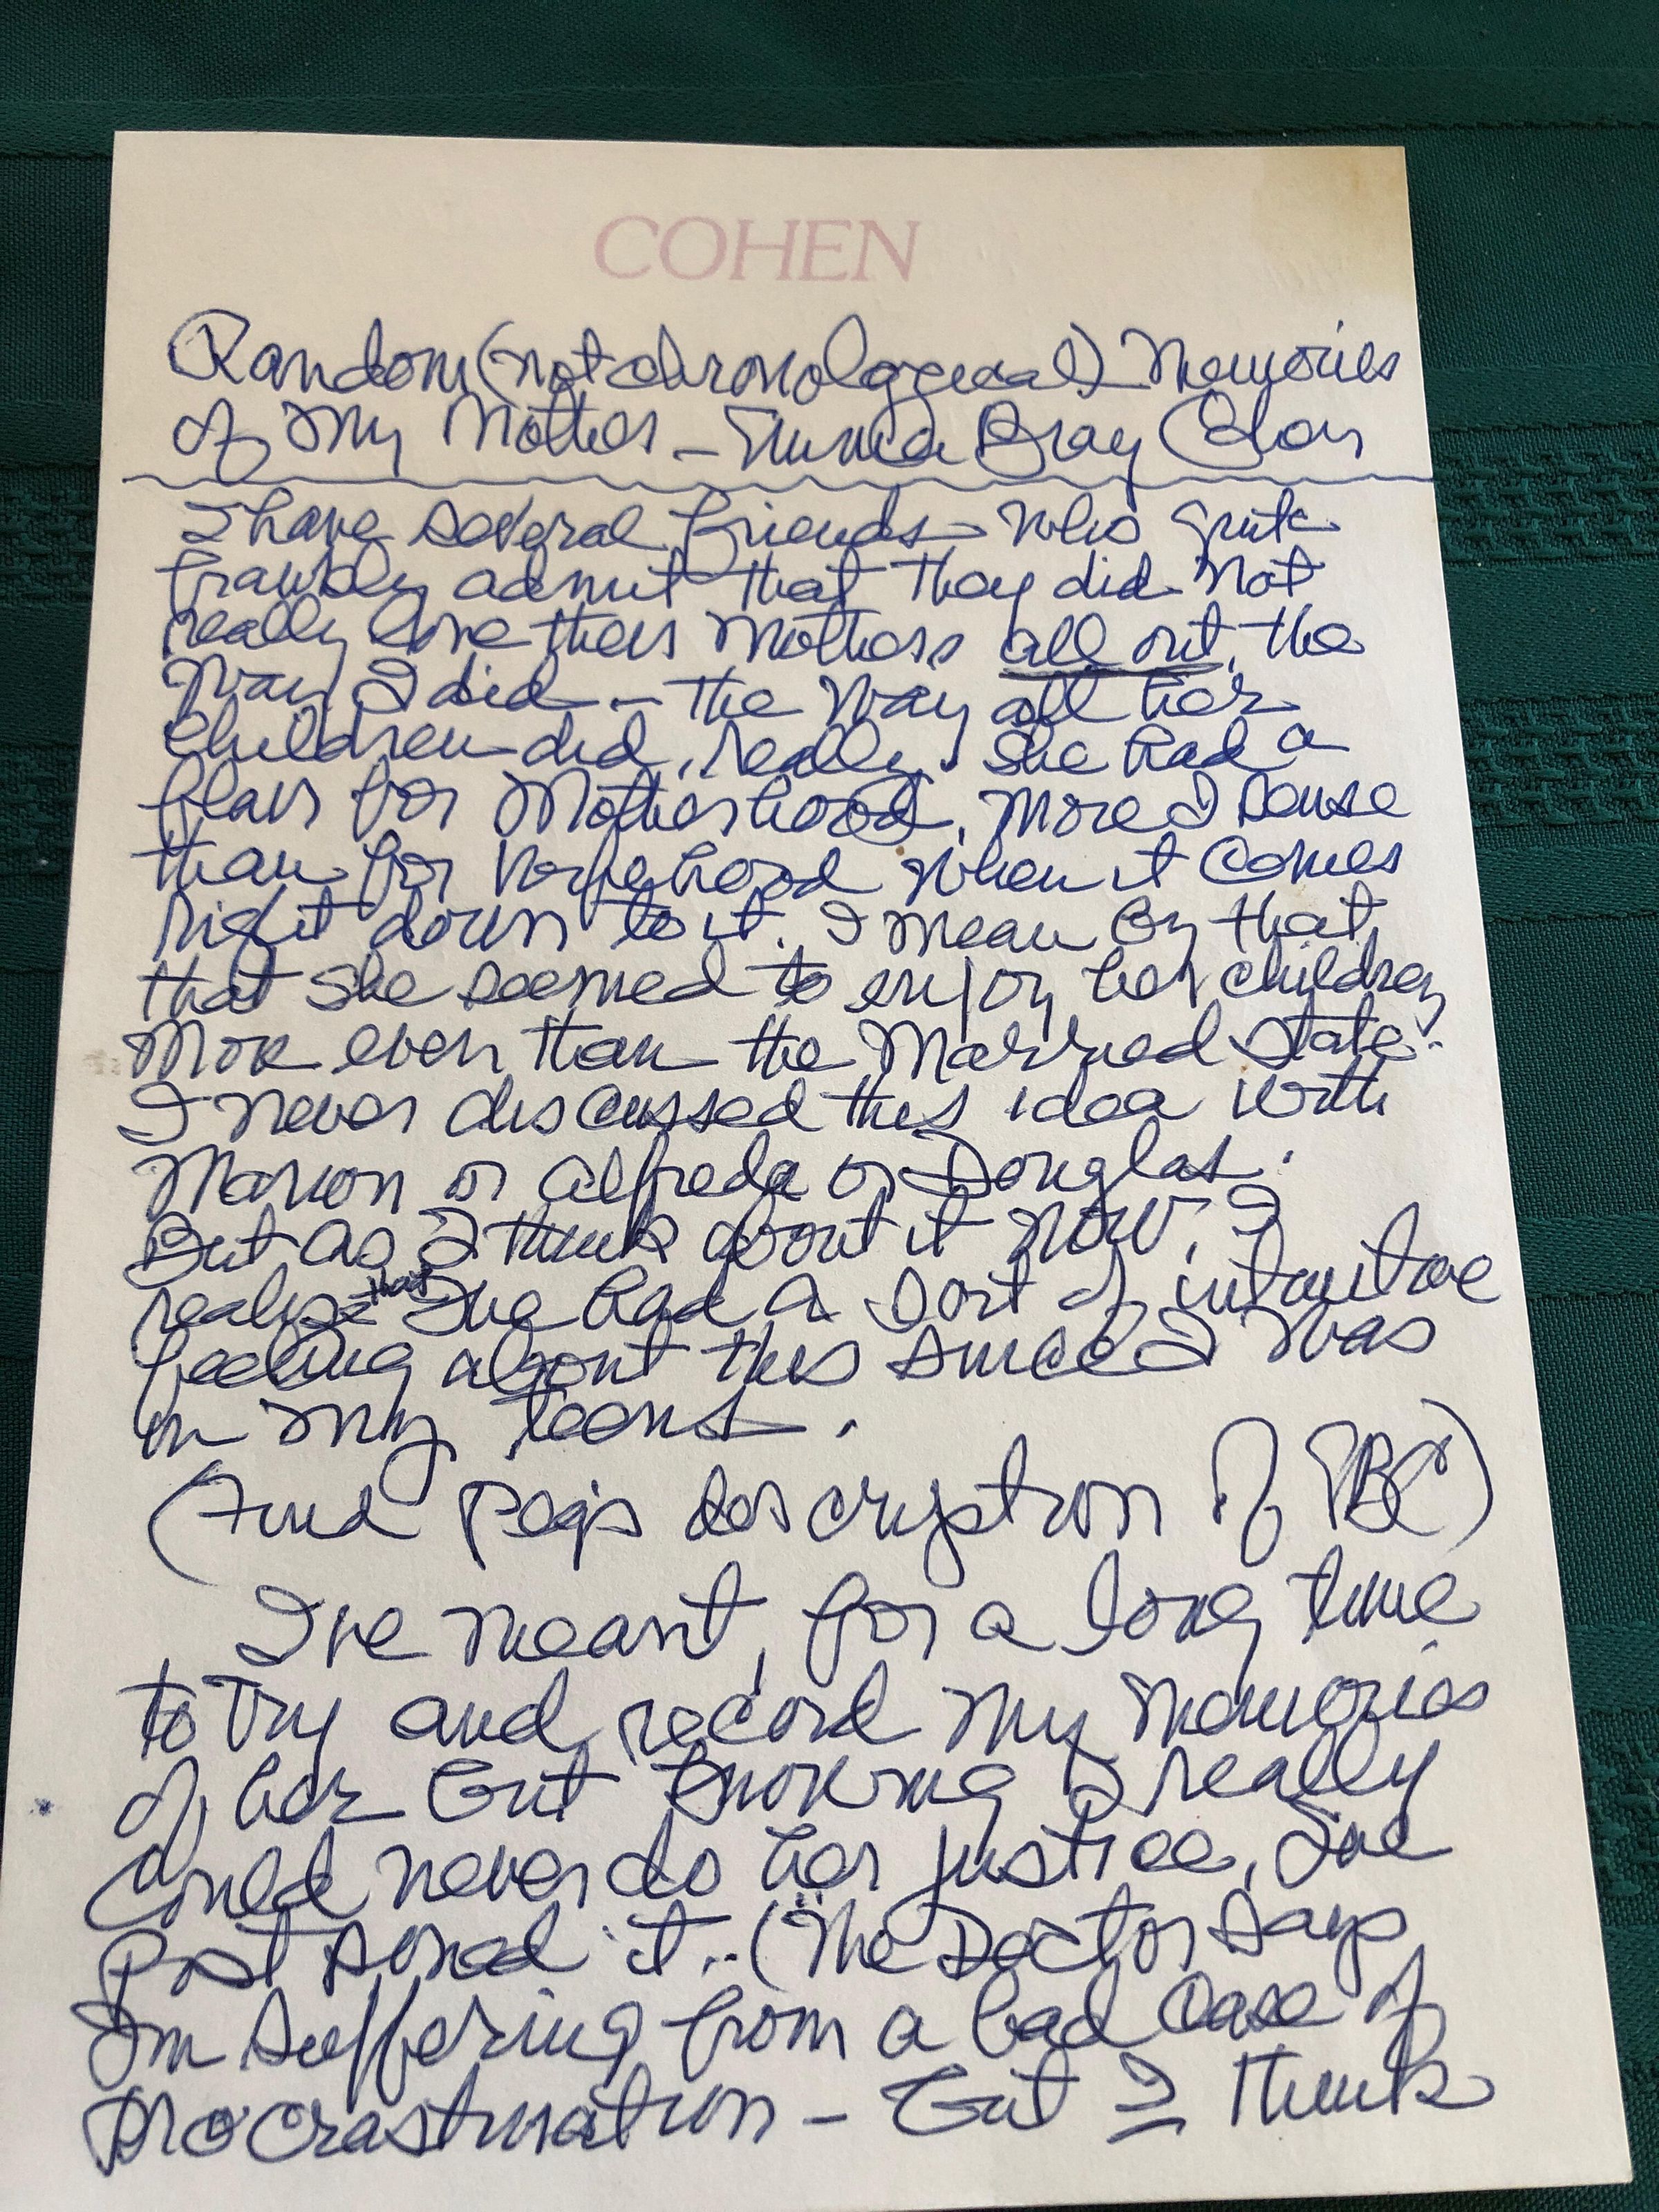 COHEN
Random (not chronological) Memories
of My Mother – Emma Bray Colon
I have several friends who quite
frankly admit that they did not
really love their Mothers all out, the
way I did – the way all her
children did, really. She had a
flair for Motherhood, more I sense
than for wifehood when it comes
right down to it. I mean by that,
that she seemed to enjoy her children
more even than the Married State.
I never discussed this idea with
Marion or Alfreda or Douglas.
But as I think about it now, I
realize that I've had a sort of intuitive
feeling about this since I was
in my teens.
(Find Peg's description of EBC)
I've meant, for a long time
to try and record my memories
of her but knowing I really
could never do her justice, I've
postponed it.. (The Doctor says
I'm suffering from a bad case of
procrastination – but I think